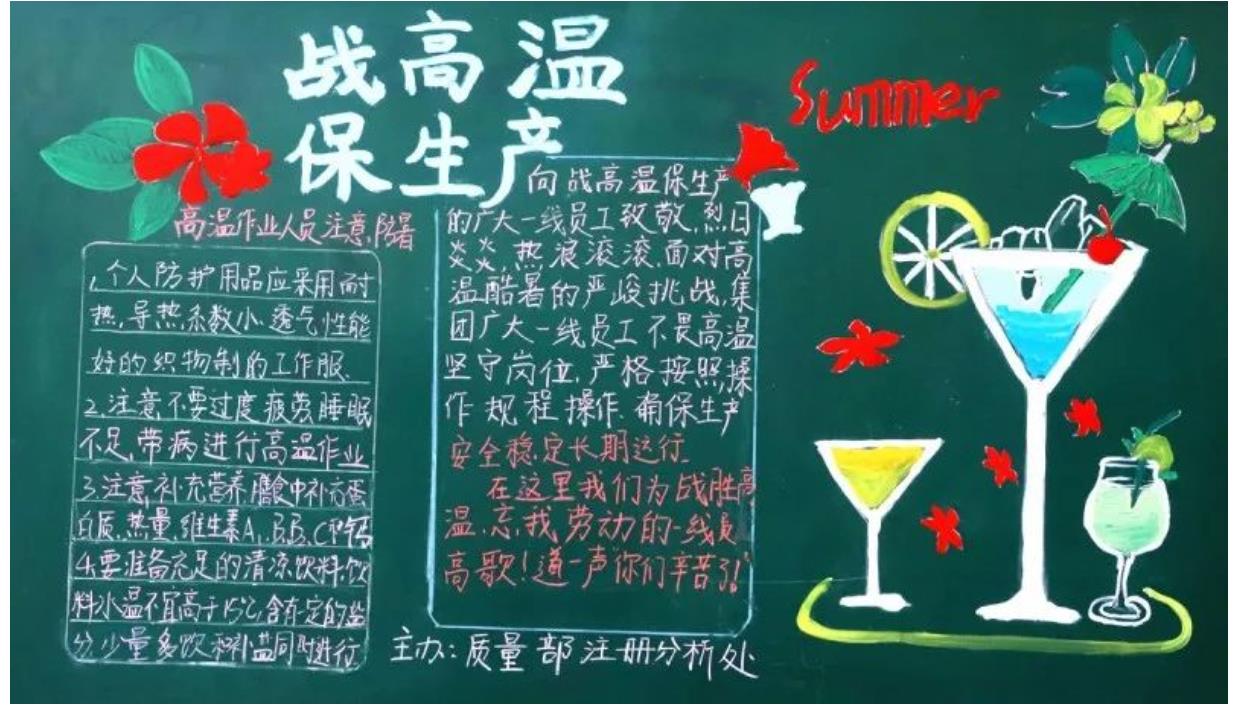 战高温
保生产
Summer
高温作业人员注意防暑
1,个人防护用品应采用耐
热,导热系数小.透气性能
好的织物制的工作服.
2.注意不要过度疲劳睡眠
不足,带病进行高温作业
3.注意补充营养膳食中补充蛋
白质、热量、维生素A、B、B、C和钙
4.要准备充足的清凉饮料.饮
料水温不宜高于15℃,含有一定的盐
分.少量多饮和补盐同时进行
向战高温保生产
的广大一线员工致敬.烈日
炎炎,热浪滚滚.面对高
温酷暑的严峻挑战,集
团广大一线员工不畏高温
坚守岗位,严格按照操
作规程操作.确保生产
安全稳定长期运行
在这里我们为战胜高
温.忘我劳动的一线员
高歌!道一声你们辛苦了!
主办:质量部注册分析处